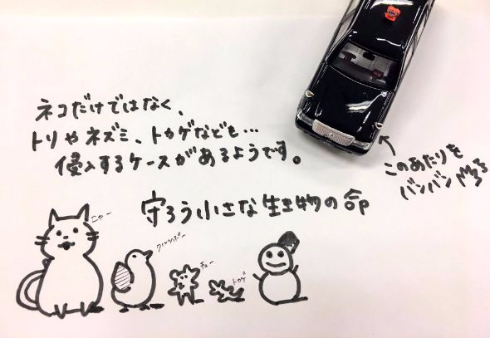 ネコだけではなく、
トリやネズミ、トカゲなども…
侵入するケースがあるようです。
このあたりを
バンバン
守ろう小さな生き物の命
ニャー
チュー
トカゲ